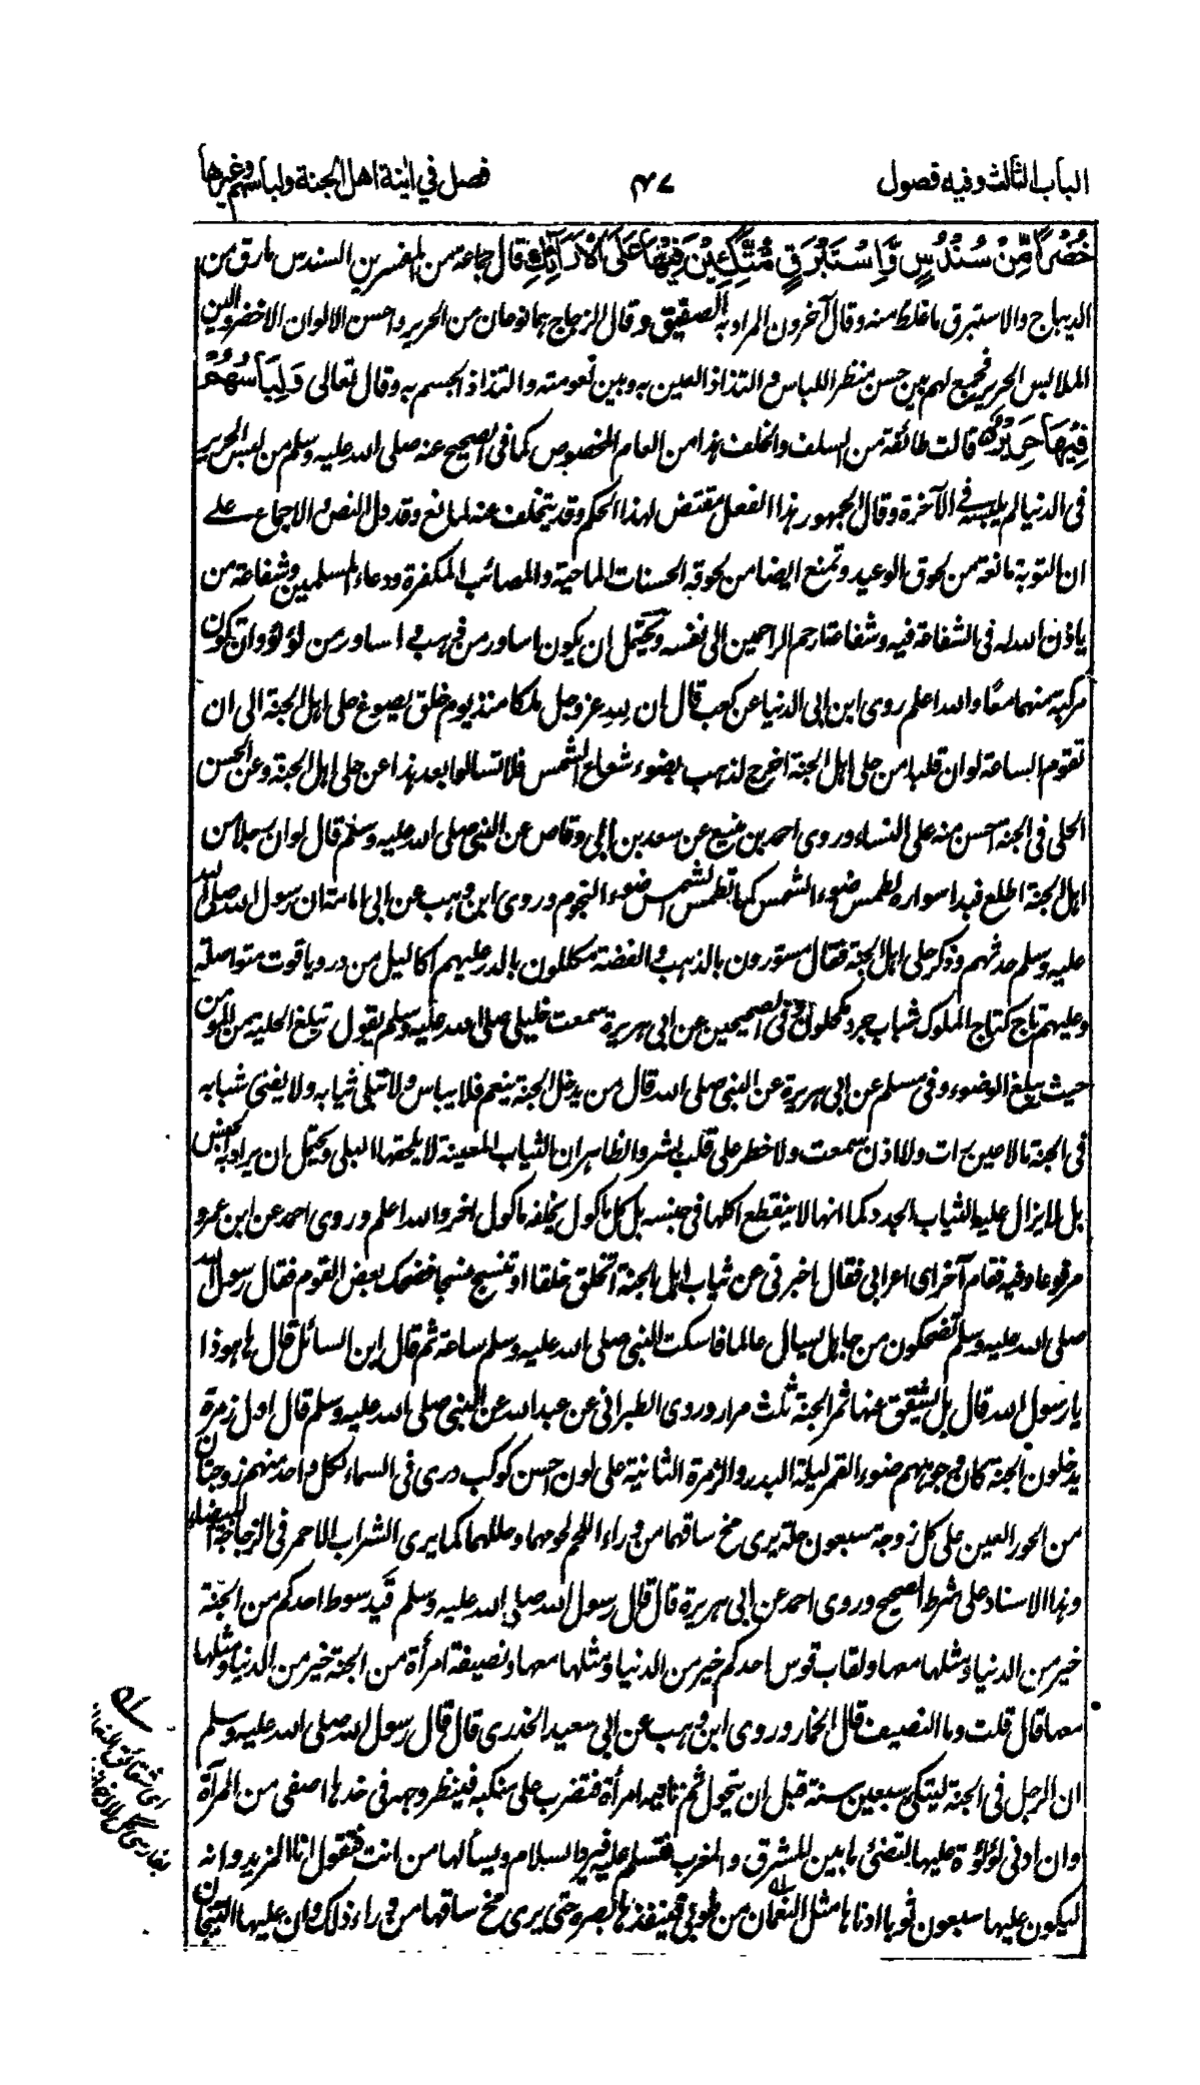 الباب الثالث وفيه فصول
٤٧
فصل في آنية اهل الجنة ولباسهم وغيرها
خُضْرًا مِّنْ سُنْدُسٍ وَّاِسْتَبْرَقٍ مُّتَّكِئِيْنَ فِيْهَا عَلَى الْاَرَآئِكِ قال جماعة من المفسرين السندس مارق من
الديباج والاستبرق ما غلظ منه وقال آخرون المراد به الصفيق وقال الزجاج هما نوعان من الحرير واحسن الالوان الاخضر والين
الملابس الحرير فجمع لهم بين حسن منظر اللباس والتذاذ العين به وبين نعومته والتذاذ الجسم به وقال تعالى وَلِبَاسُهُمْ
فِيْهَا حَرِيْرٌ قالت طائفة من السلف والخلف هذا من العام المخصوص كما في الصحيح عنه صلى الله عليه وسلم من لبس الحرير
في الدنيا لم يلبسه في الآخرة وقال الجمهور هذا الفعل مقتض لهذا الحكم وقد يتخلف عنه لمانع وقد دل النص والاجماع على
ان التوبة مانعة من لحوق الوعيد وتمنع ايضا من لحوقه الحسنات الماحية والمصائب المكفرة ودعاء المسلمين وشفاعة من
ياذن الله له في الشفاعة فيه وشفاعة ارحم الراحمين الى نفسه ويحتمل ان يكون اساور من ذهب و اساور من لؤلؤ وان تكون
مركبة منهما معًا والله اعلم روى ابن ابي الدنيا عن كعب قال ان لله عز وجل ملكا منذ يوم خلق يصوغ حلى اهل الجنة الى ان
تقوم الساعة لو ان قلبا من حلى اهل الجنة اخرج لذهب بضوء شعاع الشمس فلا تسألوا بعد هذا عن حلى اهل الجنة وعن الحسن
الحلى في الجنة احسن منه على النساء وروى احمد بن منيع عن سعد بن ابي وقاص عن النبي صلى الله عليه وسلم قال لو ان رجلا من
اهل الجنة اطلع فبدا سواره لطمس ضوء الشمس كما تطمس الشمس ضوء النجوم وروى ابن وهب عن ابي امامة ان رسول الله صلى الله
عليه وسلم حدثهم وذكر حلى اهل الجنة فقال مسورون بالذهب والفضة مكللون بالدر عليهم اكاليل من در وياقوت متواصلة
وعليهم تاج كتاج الملوك شباب جرد مكحلون وفي الصحيحين عن ابي هريرة سمعت خليلي صلى الله عليه وسلم يقول تبلغ الحلية من المؤمن
حيث يبلغ الوضوء وفي مسلم عن ابي هريرة عن النبي صلى الله قال من يدخل الجنة ينعم فلا يباس ولا تبلى ثيابه ولا يفنى شبابه
في الجنة مالا عين رات ولا اذن سمعت ولا خطر على قلب بشر والظاهر ان الثياب المعينة لا يلحقها البلى ويحتمل ان يراد به الجنس
بل لا يزال عليه الثياب الجدد كما انها لا ينقطع اكلها في جنسه بل كل ماكول يخلفه ماكول اخر والله اعلم وروى احمد عن ابن عمرو
مرفوعا وفيه فقام آخر اى اعرابي فقال اخبرني عن ثياب اهل الجنة اتخلق خلقا او تنسج نسجا فضحك بعض القوم فقال رسول الله
صلى الله عليه وسلم تضحكون من جاهل يسال عالما فاسكت النبي صلى الله عليه وسلم ساعة ثم قال اين السائل قال ها هو ذا
يا رسول الله قال بل يشقق عنها ثمر الجنة ثلث مرار وروى الطبراني عن عبد الله عن النبي صلى الله عليه وسلم قال اول زمرة
يدخلون الجنة كان وجوههم ضوء القمر ليلة البدر والزمرة الثانية على لون احسن كوكب درى في السماء لكل واحد منهم زوجتان
من الحور العين على كل زوجة سبعون حلة يرى مخ ساقهما من وراء اللحم لحومهما وحللهما كما يرى الشراب الاحمر في الزجاجة البيضاء
وهذا الاسناد على شرط الصحيح وروى احمد عن ابي هريرة قال قال رسول الله صلى الله عليه وسلم قيد سوط احدكم من الجنة
خير من الدنيا ومثلها معها ولقاب قوس احدكم خير من الدنيا ومثلها معها ونصيفة امرأة من الجنة خير من الدنيا ومثلها
معها قال قلت وما النصيف قال الخمار وروى ابن وهب عن ابي سعيد الخدرى قال قال رسول الله صلى الله عليه وسلم
ان الرجل في الجنة ليتكي سبعين سنة قبل ان يتحول ثم تاتيه امرأة فتضرب على منكبه فينظر وجهه في خدها اصفى من المرآة
وان ادنى لؤلؤة عليها لتضئ ما بين المشرق والمغرب فتسلم عليه فيرد السلام ويسألها من انت فتقول انا المزيد وانه
ليكون عليها سبعون ثوبا ادناها مثل النعمان من طوبى فينفذها بصره حتى يرى مخ ساقها من وراء ذلك وان عليها التيجان
اى شقائق النعمان